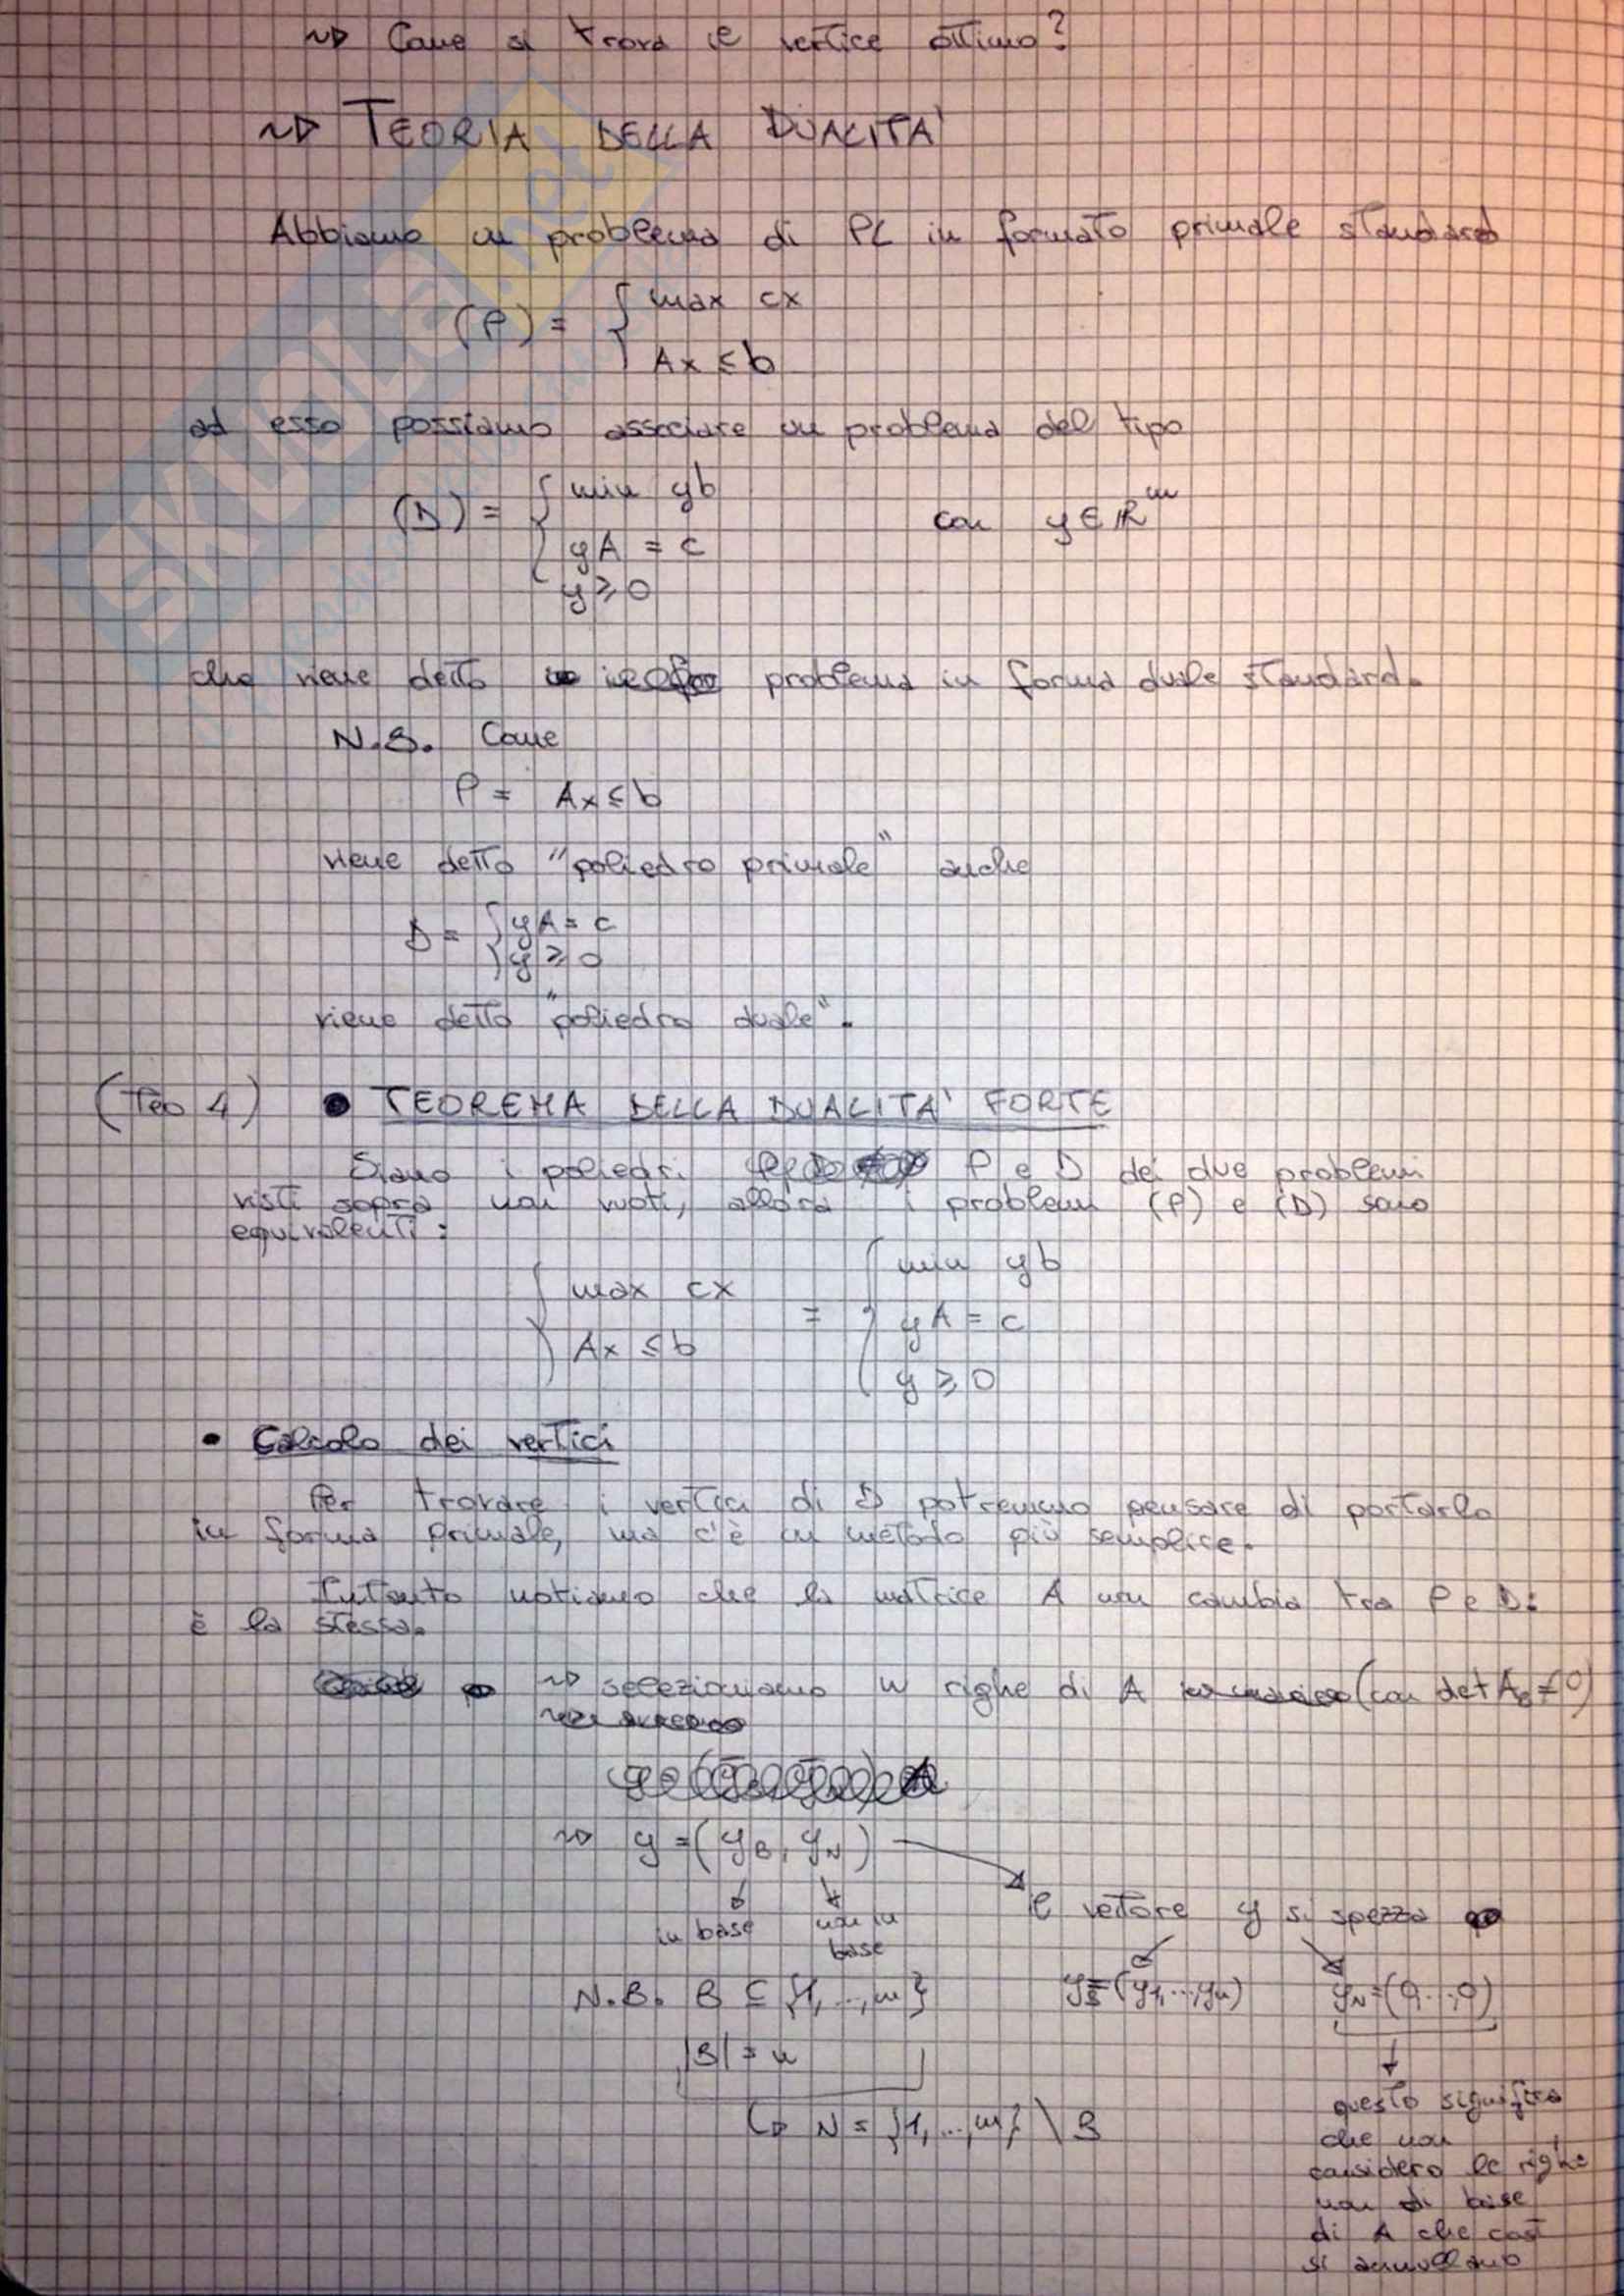 ~▷ Come si trova il vertice ottimo?
~▷ TEORIA DELLA DUALITA'
Abbiamo un problema di PL in formato primale standard
(P) = { max cx
Ax ≤ b
ad esso possiamo associare un problema del tipo
(D) = { min yb
yA = c
y ≥ 0
con y ∈ ℝ^m
che viene detto problema in forma duale standard.
N.B. Come
P = Ax ≤ b
viene detto "poliedro primale" anche
D = { yA = c
y ≥ 0
viene detto "poliedro duale".
(Teo 4) • TEOREMA DELLA DUALITA' FORTE
Siano i poliedri P e D dei due problemi
visti sopra non vuoti, allora i problemi (P) e (D) sono
equivalenti:
{ max cx
Ax ≤ b
=
{ min yb
yA = c
y ≥ 0
• Calcolo dei vertici
Per trovare i vertici di D potremmo pensare di portarlo
in forma primale, ma c'è un metodo più semplice.
Intanto notiamo che la matrice A non cambia tra P e D:
è la stessa.
~▷ selezioniamo n righe di A (con det A_B ≠ 0)
~▷ y = (y_B, y_N)
in base
non in
base
il vettore y si spezza
y_B = (y1, ..., yn)
y_N = (0...,0)
N.B. B ⊆ {1, ..., m}
|B| = n
↳ N = {1, ..., m} \ B
questo significa
che non
considero le righe
non di base
di A che così
si annullano
SKUOLA.net